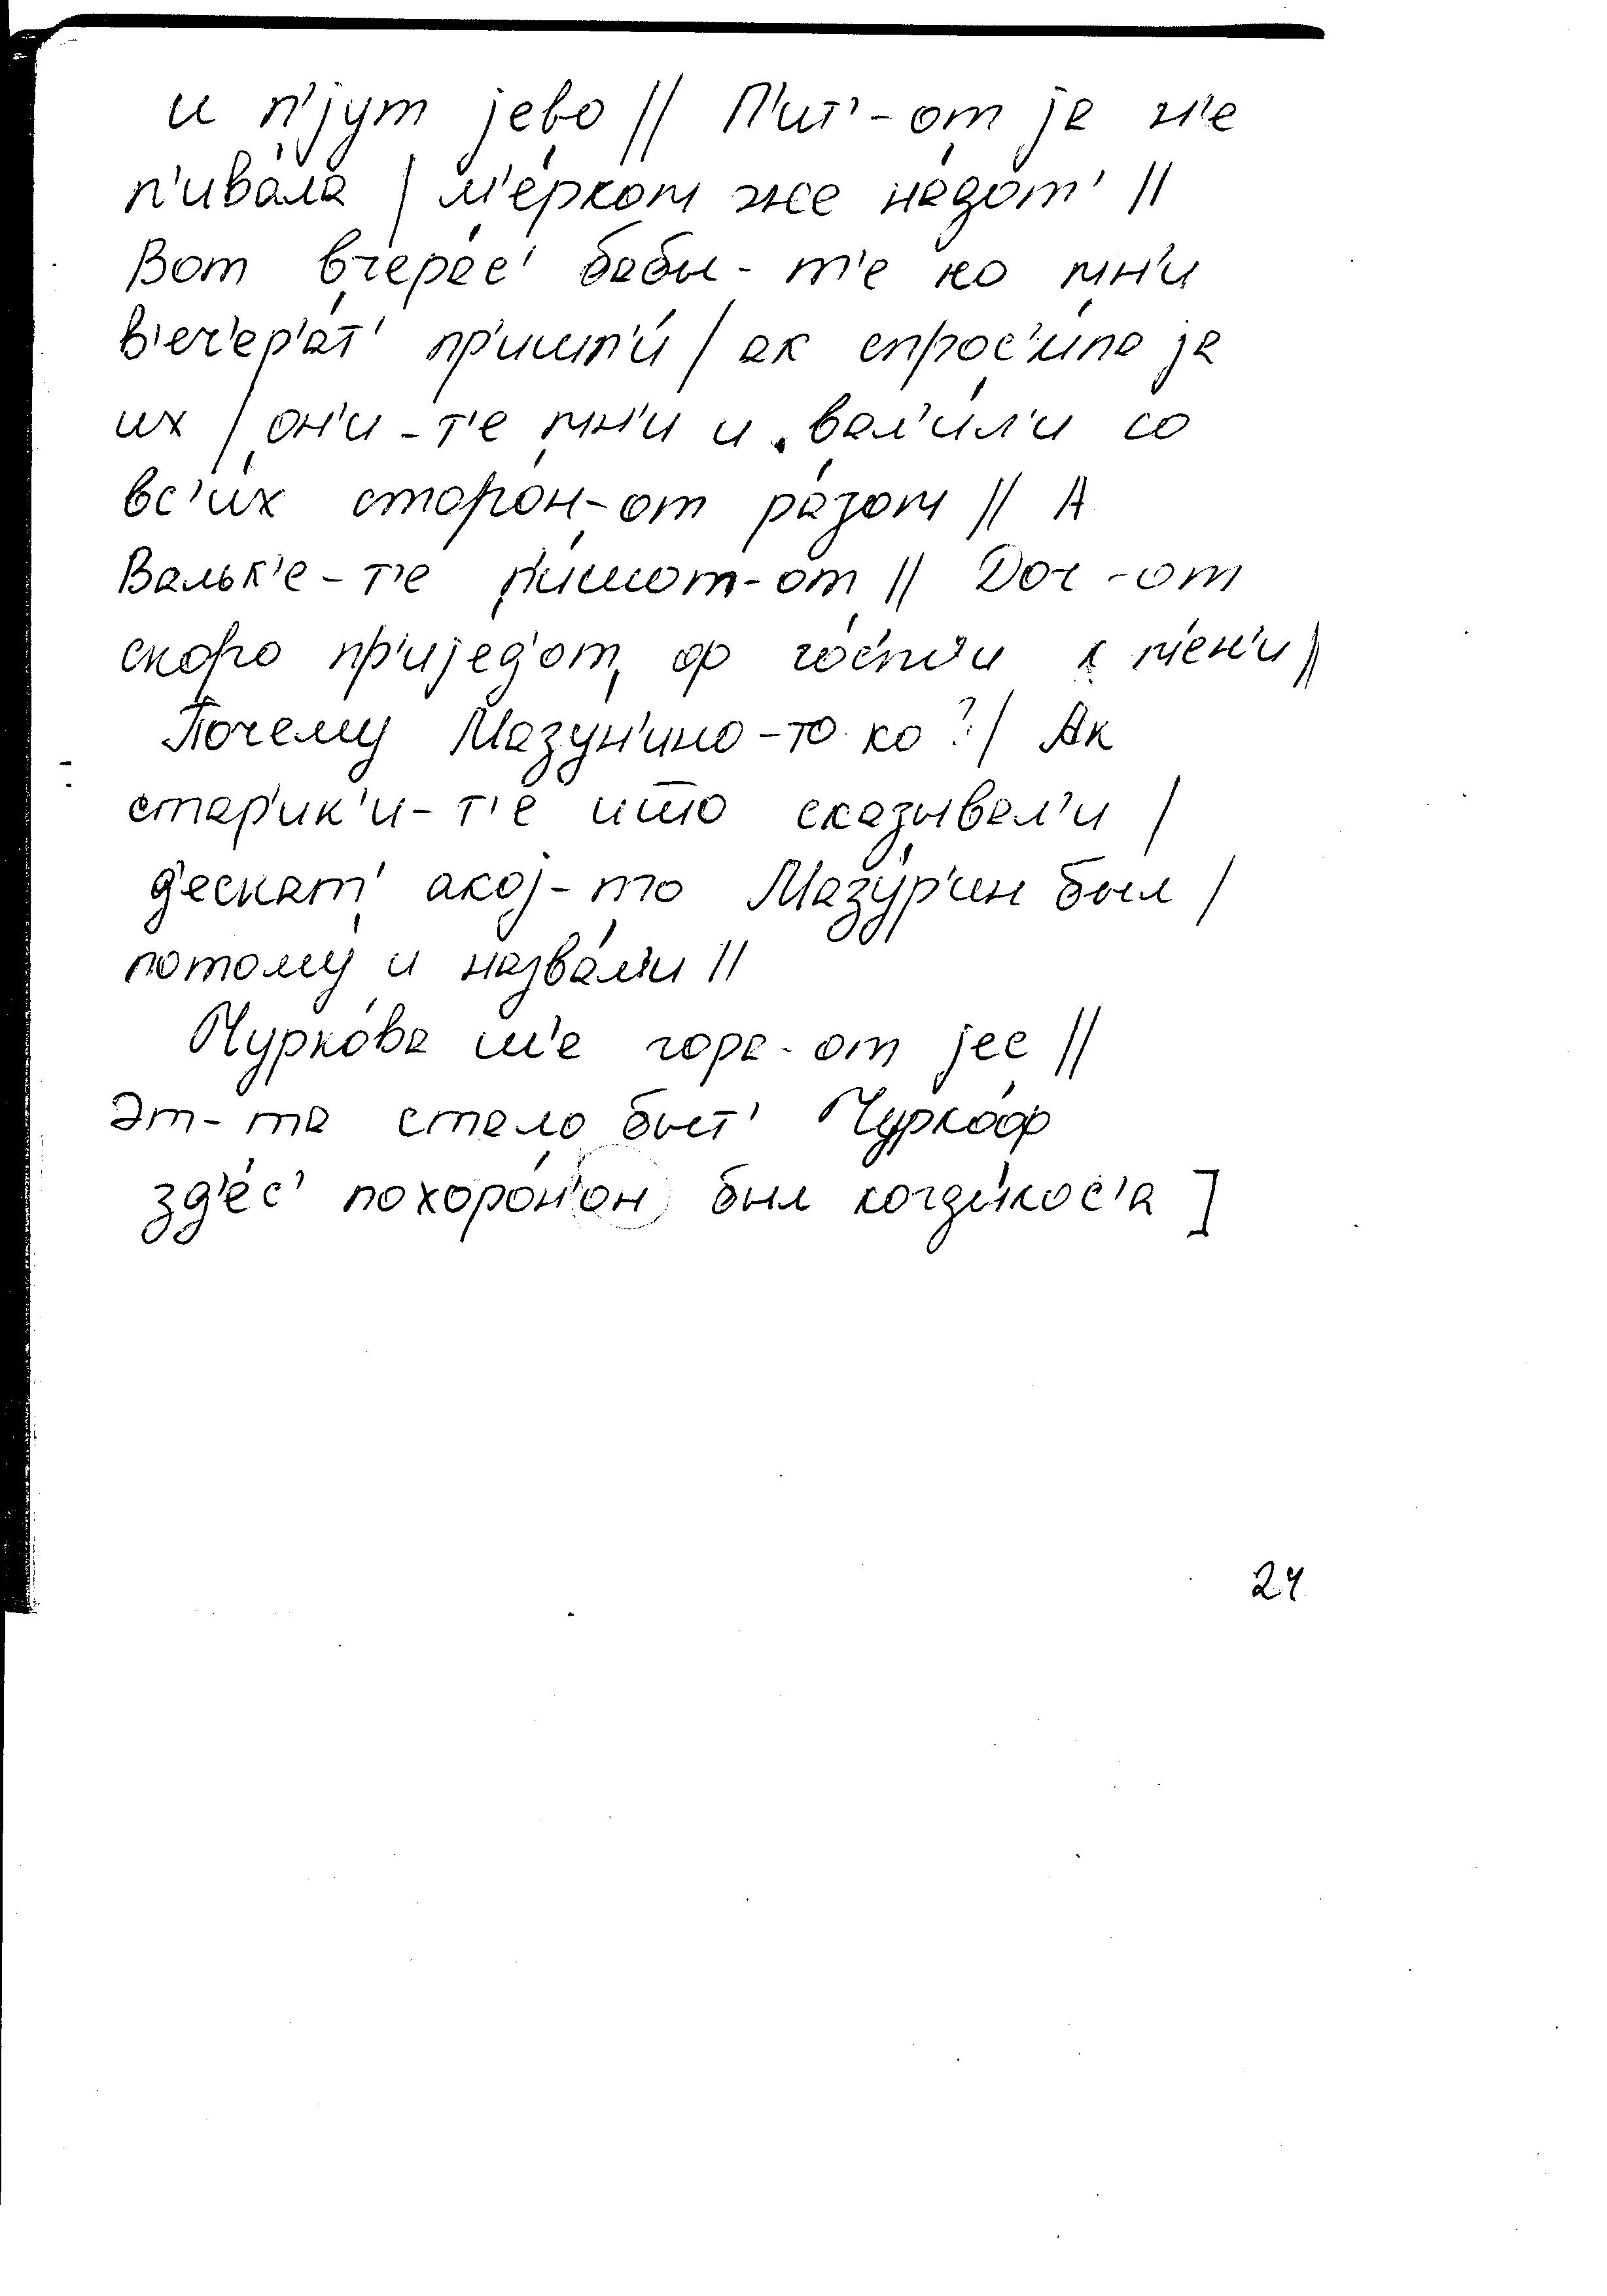 и п'јут јево // П'ит'-от ја н'е
п'ива́ла / м'е́рком же на́дот' //
Вот вчера́с' бабы-т'е ко мн'и
в'еч'ер'а́т' пр'ишл'и́ / ак спрос'и́ла ја
их / он'и-т'е мн'и и вал'и́л'и со
вс'и́х сторо́н-от ра́зом // А
Вальк'е-т'е п'и́шот-от // Доч-от
скоро пр'ијед'от, оф го́ст'и к мен'и //
Почему Мазун'ино-то ко? / Ак
стар'ик'и-т'е што сказывал'и /
д'ескат' акој-то Мазу́р'ин был /
потому́ и назва́л'и //
Чурко́ва ш'е гора-от јес //
Эт-та стало быт' Чурко́ф
зд'е́с' похоро́н'он был когда́кос'а ]
24